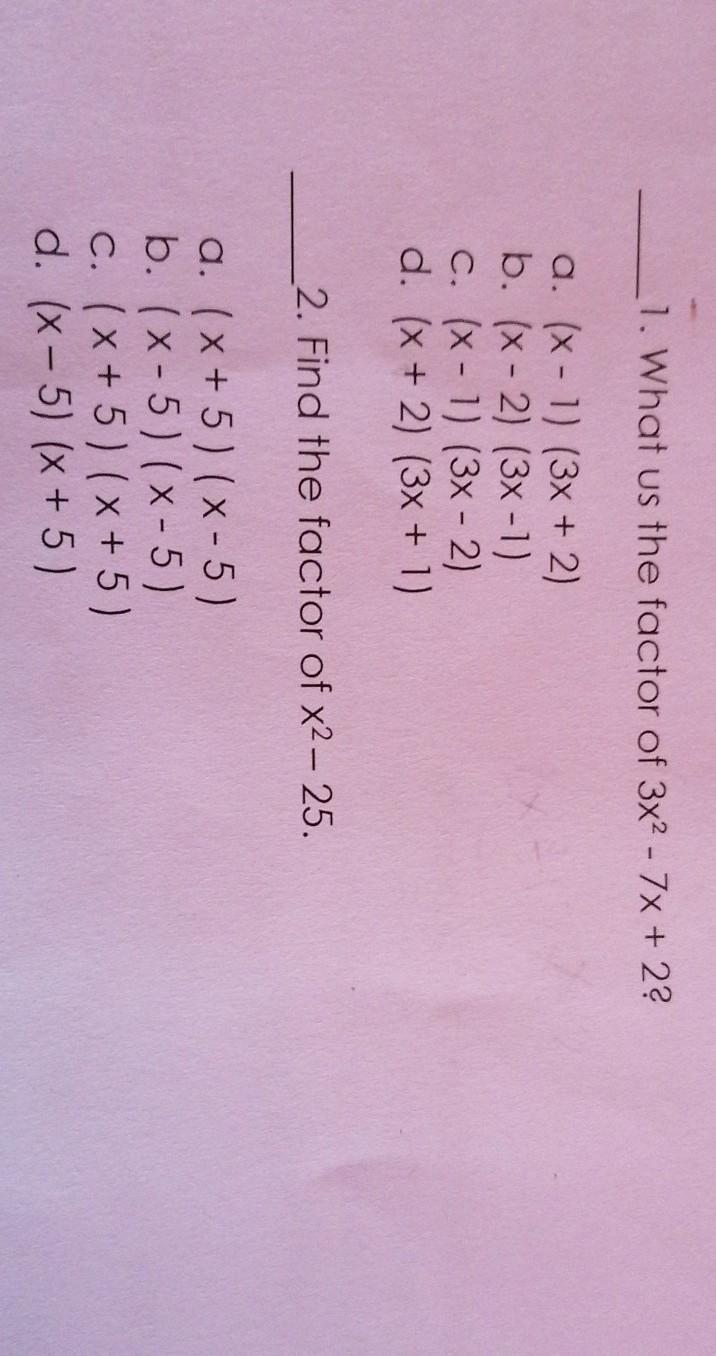 _____1. What us the factor of 3x² - 7x + 2?
a. (x - 1) (3x + 2)
b. (x - 2) (3x -1)
c. (x - 1) (3x - 2)
d. (x + 2) (3x + 1)
_____2. Find the factor of x² – 25.
a. ( x + 5 ) ( x - 5 )
b. ( x - 5 ) ( x - 5 )
c. ( x + 5 ) ( x + 5 )
d. (x – 5) (x + 5 )